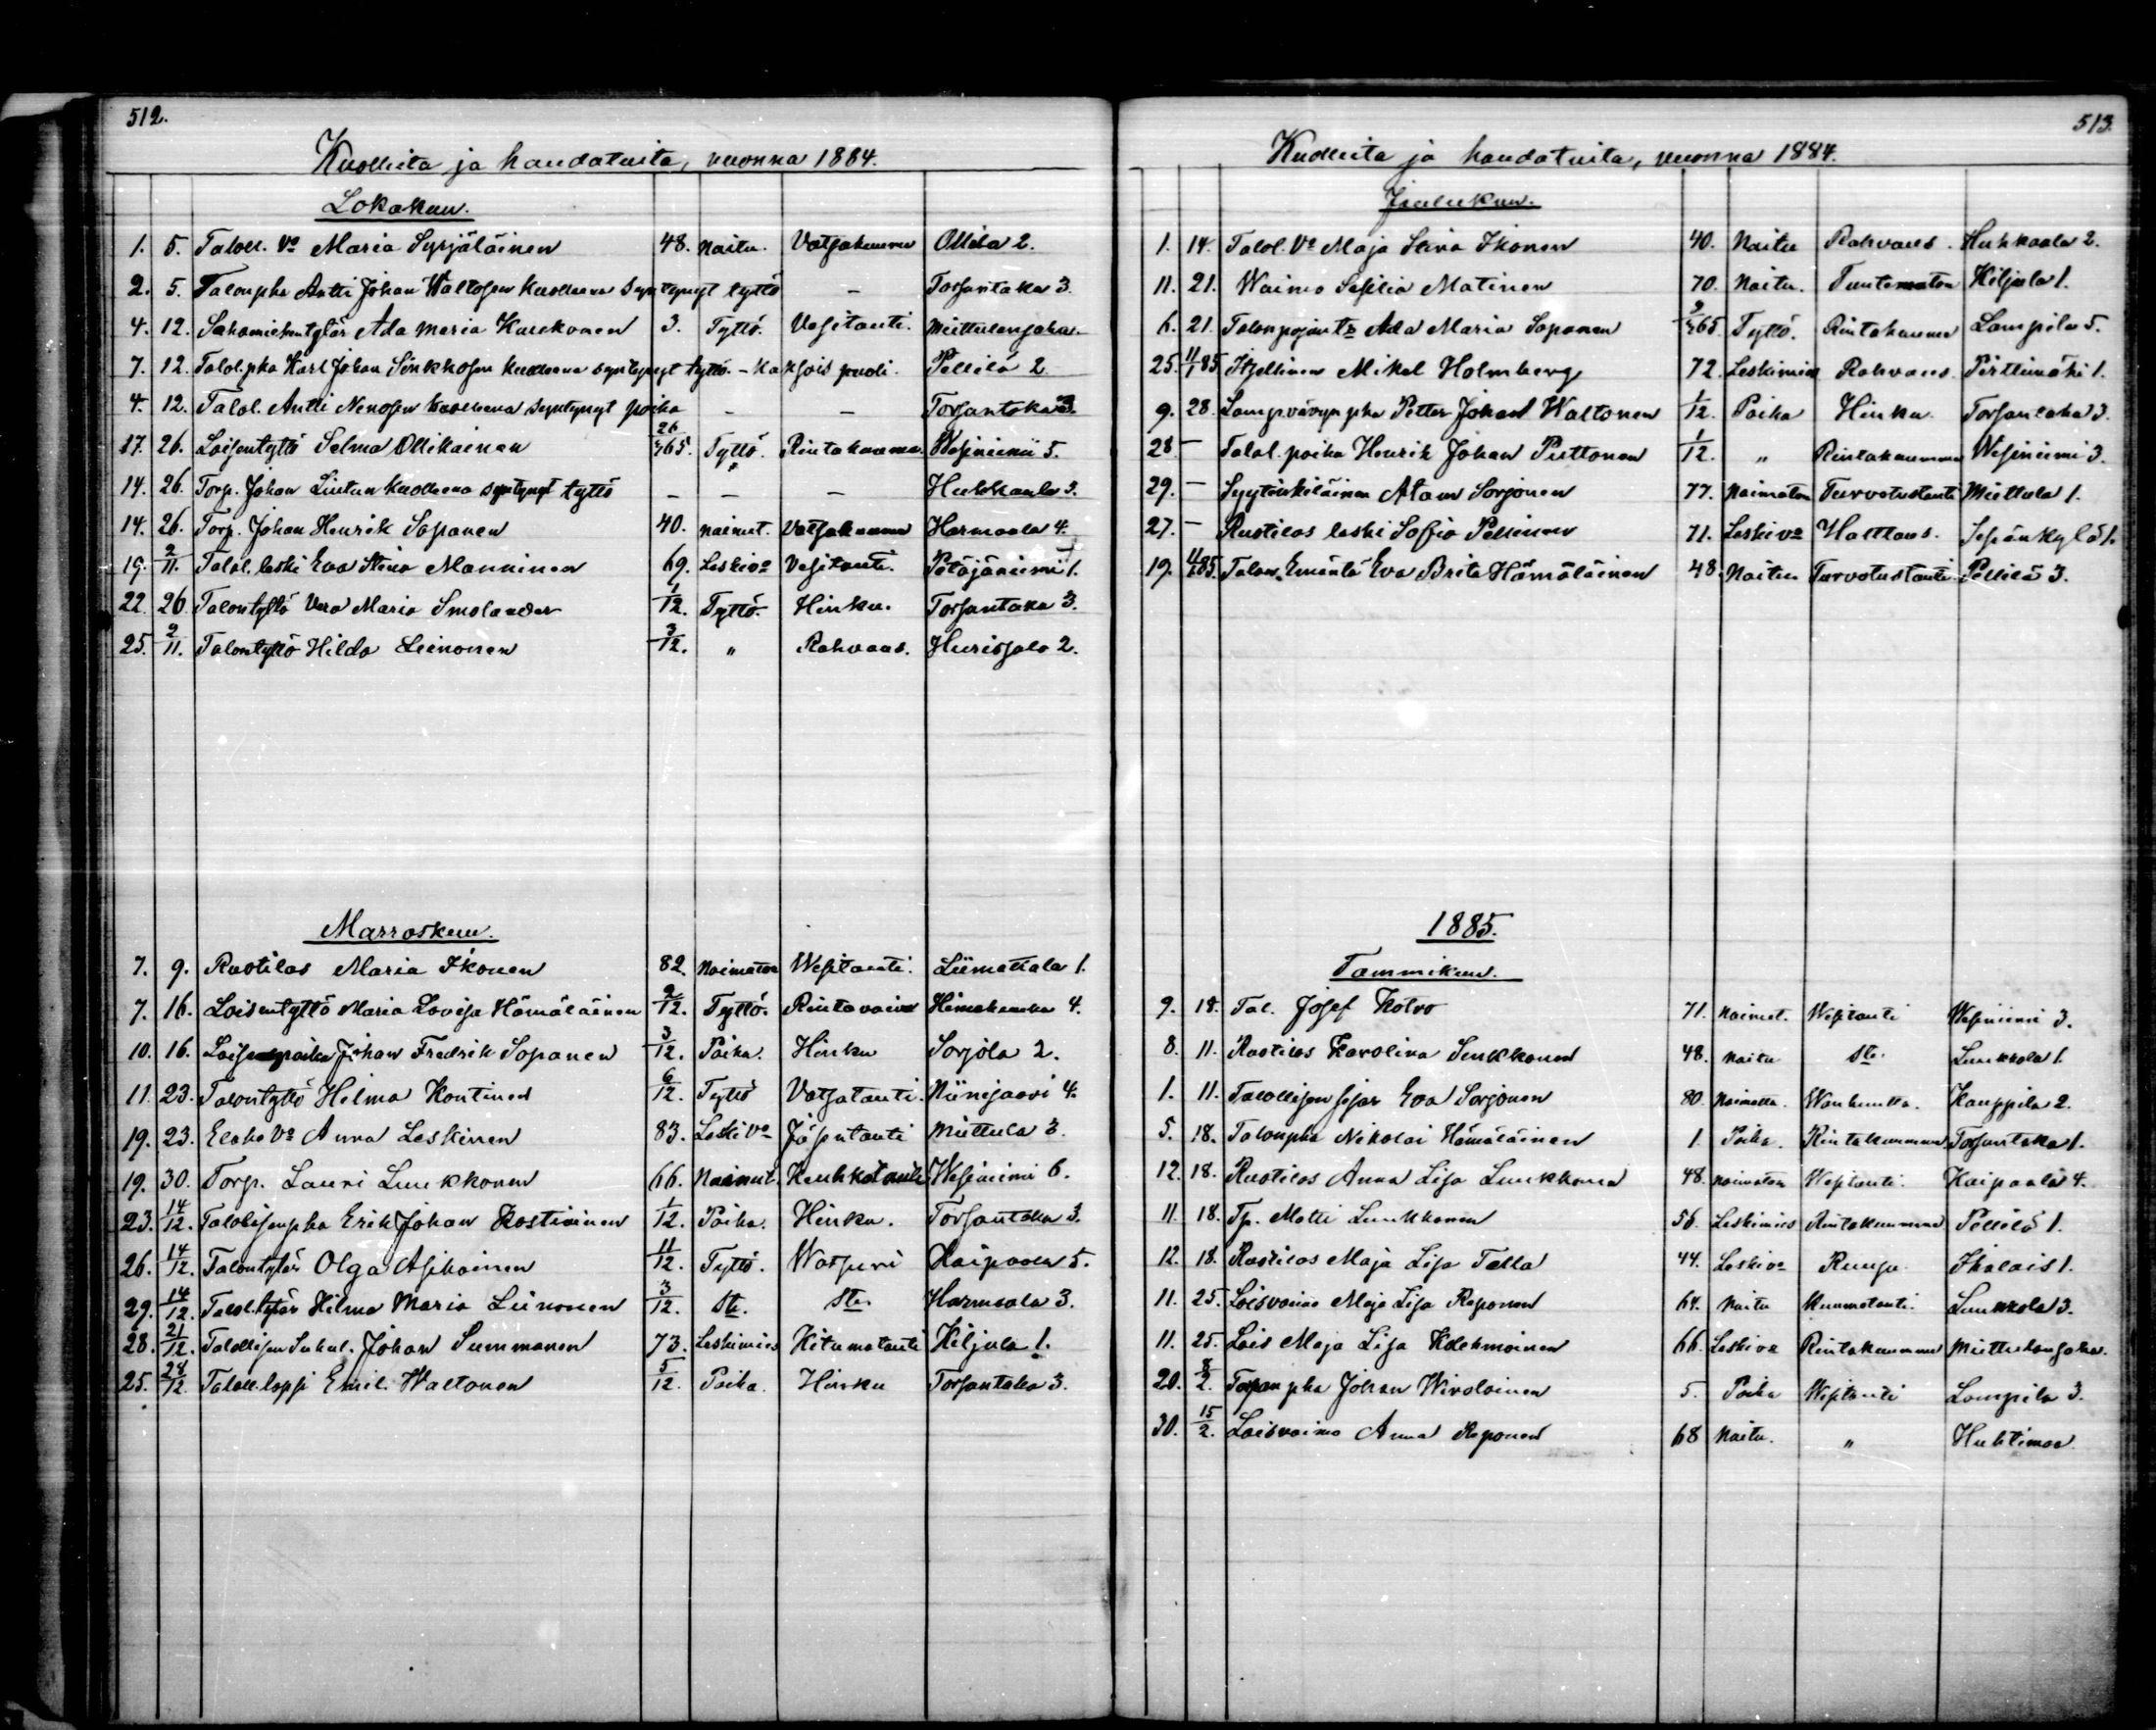 512.
Kuolleita ja haudatuita, vuonna 1884.
Lokakuu.
1. 5. Taloll. Vo Maria Syrjäläinen 48. Naitu. Vatsakuume Ollila 2.
2. 5. Talon pka Antti Johan Waltosen kuolleena syntynyt tyttö - Torsantaka 3.
4. 12. Sahamiehentytär Ada Maria Kuukonen 3. Tyttö. Vesitauti. Miettulansaha.
7. 12. Talol. pka Karl Johan Sinkkosen kuolleena syntynyt tyttö. - kaksois puoli. Pellilä 2
4. 12. Talol. Antti Nenosen kuolleena syntynyt poika - - Torsantaka 3.
17. 26. Loisentyttö Selma Ollikainen 26/365. Tyttö. Rintakuume. Wesiniemi 5.
14. 26. Torp. Johan kuolleena syntynyt tyttö - - - Huhkaala 3.
14. 26. Torp. Johan Henrik Soponen 40. Nainut. Vatsakuume Harmaala 4.
19. 2/11. Talol. leski Eva Stina Manninen 69. Leskivo Vesitauti. Petäjäniemi 1.
22. 26. Talontyttö Vera Maria Smolander 1/12. Tyttö. Hinku. Torsantaka 3.
25. 2/11. Talontyttö Hilda Leinonen 3/12. " Rohvaas. Hurissalo 2.
Marraskuu.
7. 9. Ruotilas Maria Ikonen 82. Naimaton Wesitauti. Liimattala 1.
7. 16. Loisentyttö Maria Lovisa Hämäläinen 2/12. Tyttö. Rintavaiva 4.
10. 16. Loisenpoika Johan Fredrik Soponen 3/12. Poika. Hinku Sorjola 2.
11. 23. Talontyttö Helma Kontinen 6/12. Tyttö Vatsatauti. Niinijaarvi 4.
19. 23. Elako Vo Anna Leskinen 83. Leskivo Jäsentauti Miettula 3.
19. 30. Torp. Lauri Luukkonen 66. Nainut. Keuhkotauti Wesiniemi 6.
23. 14/12. Talolisenpka Erik Johan Kostiainen 1/12. Poika. Hinku. Torsantaka 3.
26. 14/12. Talontytär Olga Asikainen 11/12. Tyttö. Watsuri Kaipaala 5.
29. 14/12. Talol. tytär Hilma Maria Liinonen 3/12. Ste. Ste. Harmaala 3.
28. 21/12. Talollisen Johan Summanen 73. Leskimies Hitumatauti Hiljula 1.
25. 28/12. Taloll. lapsi Emil Waltonen 5/12. Poika. Hinku Torsantaka 3.
513.
Kuolleita ja haudatuita, vuonna 1884.
Joulukuu.
1. 14. Talol. Vo Maja Stina Ikonen 40. Naitu Rohvaus. Huhkaala 2.
11. 21. Waimo Sesilia Matinen 70. Naitu. Tuntematon Hiljula 1.
6. 21. Talonpojant. Ada Maria Soponen 2/365 Tyttö. Rintakuume Lampila 5.
25. 11/1 85 Itsellinen Mikel Holmberg 72. Leskimies Rohvaus. Pirttimäki 1.
9. 28. Lampvävyn pka Petter Johan Waltonen 1/12. Poika Hinku. Torsantaka 3.
28 - Talol. poika Henrik Johan Pirttonen 1/12. " Rintakuume Wesiniemi 3.
29. - Syytinkiläinen Atam Sorjonen 77. Naimaton Turvotustauti Miettula 1.
27. - Ruotilas leski Sofia Pellinen 71. Leskivo Halttaus. Sepänkylä 1.
19. 4/1 85. Talon Emäntä Eva Brita Hämäläinen 48. Naitu Turvotustauti Pellilä 3.
1885.
Tammikuu.
9. 18. Tal. Josef Kolvo 71. Nainut. Wesitauti Wesiniemi 3.
8. 11. Ruotilas Karolina Sinkkonen 48. Naitu Ste. Luukkola 1.
1. 11. Talollisen sisar Eva Sorjonen 80. Naimatt. Wanhuutta. Kauppila 2.
5. 18. Talonpka Nikolai Hämäläinen 1. Poika. Rintakuumme Torsantaka 1.
12. 18. Ruotilas Anna Lisa Luukkonen 48. Naimaton Wesitauti. Kaipaala 4.
11. 18. Tp. Matti Luukkonen 56. Leskimies Rintakuumme Pellilä 1.
12. 18. Ruotilas Maja Lisa Talla 44. Leskivo Ikolais 1.
11. 25. Loisvaimo Maja Lisa Reponen 64. Naitu Kuumatauti. Luukkola 3.
11. 25. Lois Maja Lisa Kolehmainen 66. Leskivo Rintakuumme Miettulansaha.
20. 8/2. pka Johan Wirolainen 5. Poika Wesitauti Lampila 3.
30. 15/2. Loisvaimo Anna Reponen 68 Naitu. " Huhtimaa.